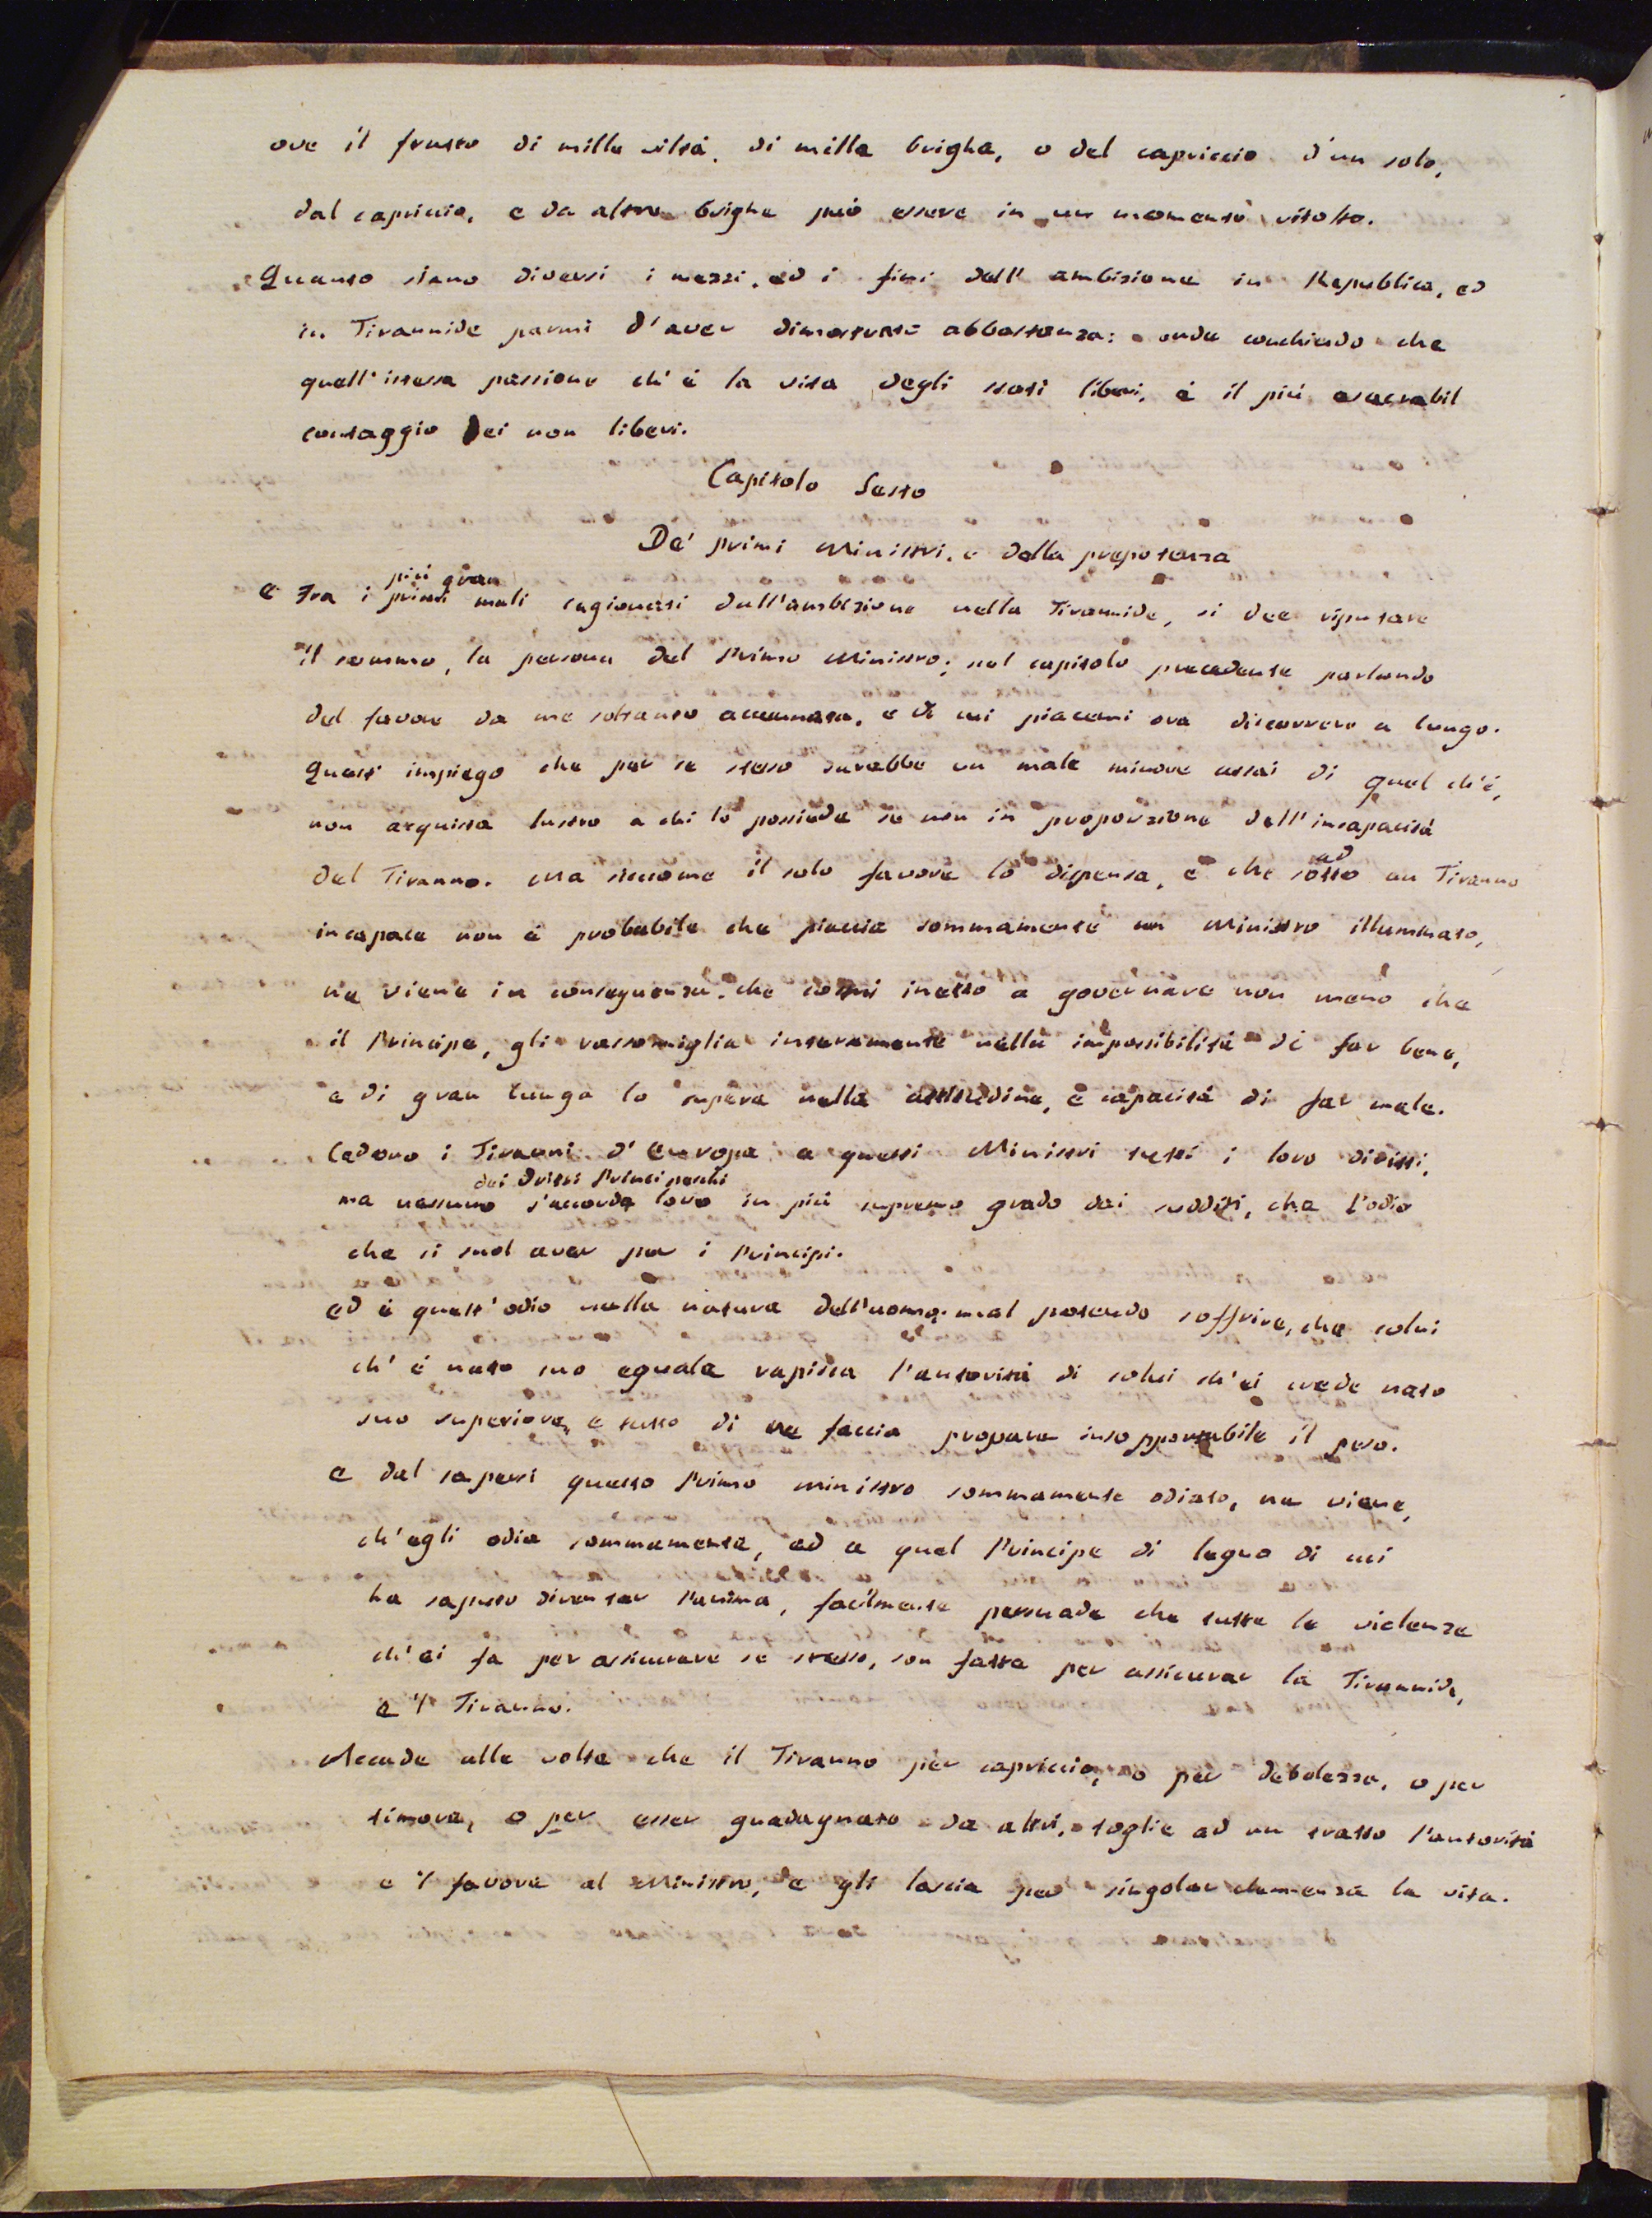 ove il frutto di mille viltà, di mille brighe, o del capriccio d'un solo,
dal capriccio, e da altre brighe può essere in un momento ritolto.
Quanto siano diversi i mezzi, ed i fini dell'ambizione in Repubblica, ed
in Tirannide parmi d'aver dimostrato abbastanza: onde conchiudo che
quell'istessa passione ch'è la vita degli stati liberi, è il più esecrabil
contaggio dei non liberi.
Capitolo Sesto
De' primi Ministri, e della prepotenza
più gran
E tra i primi mali cagionati dall'ambizione nella Tirannide, si dee riputare
il sommo, la persona del Primo Ministro; nel capitolo precedente parlando
del favore da me soltanto accennata, e di cui piacemi ora discorrere a lungo.
Quest'impiego che per se stesso sarebbe un male minore assai di quel ch'è,
non acquista lustro a chi lo possiede se non in proporzione dell'incapacità
ad
del Tiranno. Ma siccome il solo favore lo dispensa, e che sotto un Tiranno
incapace non è probabile che piaccia sommamente un Ministro illuminato,
ne viene in conseguenza, che costui inetto a governare non meno che
il Principe, gli rassomiglia interamente nella impossibilità di far bene,
e di gran lunga lo supera nella attitudine, e capacità di far male.
Cedono i Tiranni d'Europa a questi Ministri tutti i loro diritti,
dei dritti Principeschi
ma nessuno s'accorda loro in più supremo grado dai sudditi, che l'odio
che si suol aver per i Principi.
ed è quest'odio nella natura dell'uomo: mal potendo soffrire, che colui
ch'è nato suo eguale rapisca l'autorità di colui ch'ei crede nato
suo superiore, e tutto dì ne faccia provare insopportabile il peso.
E dal sapersi questo Primo Ministro sommamente odiato, ne viene,
ch'egli odia sommamente, ed a quel Principe di legno di cui
ha saputo diventar l'anima, facilmente persuade che tutte le violenze
ch'ei fa per assicurare se stesso, son fatte per assicurar la Tirannide,
e 'l Tiranno.
Accade alle volte che il Tiranno per capriccio, o per debolezza, o per
timore, o per esser guadagnato da altri, toglie ad un tratto l'autorità
e 'l favore al Ministro, e gli lascia per singolar clemenza la vita.